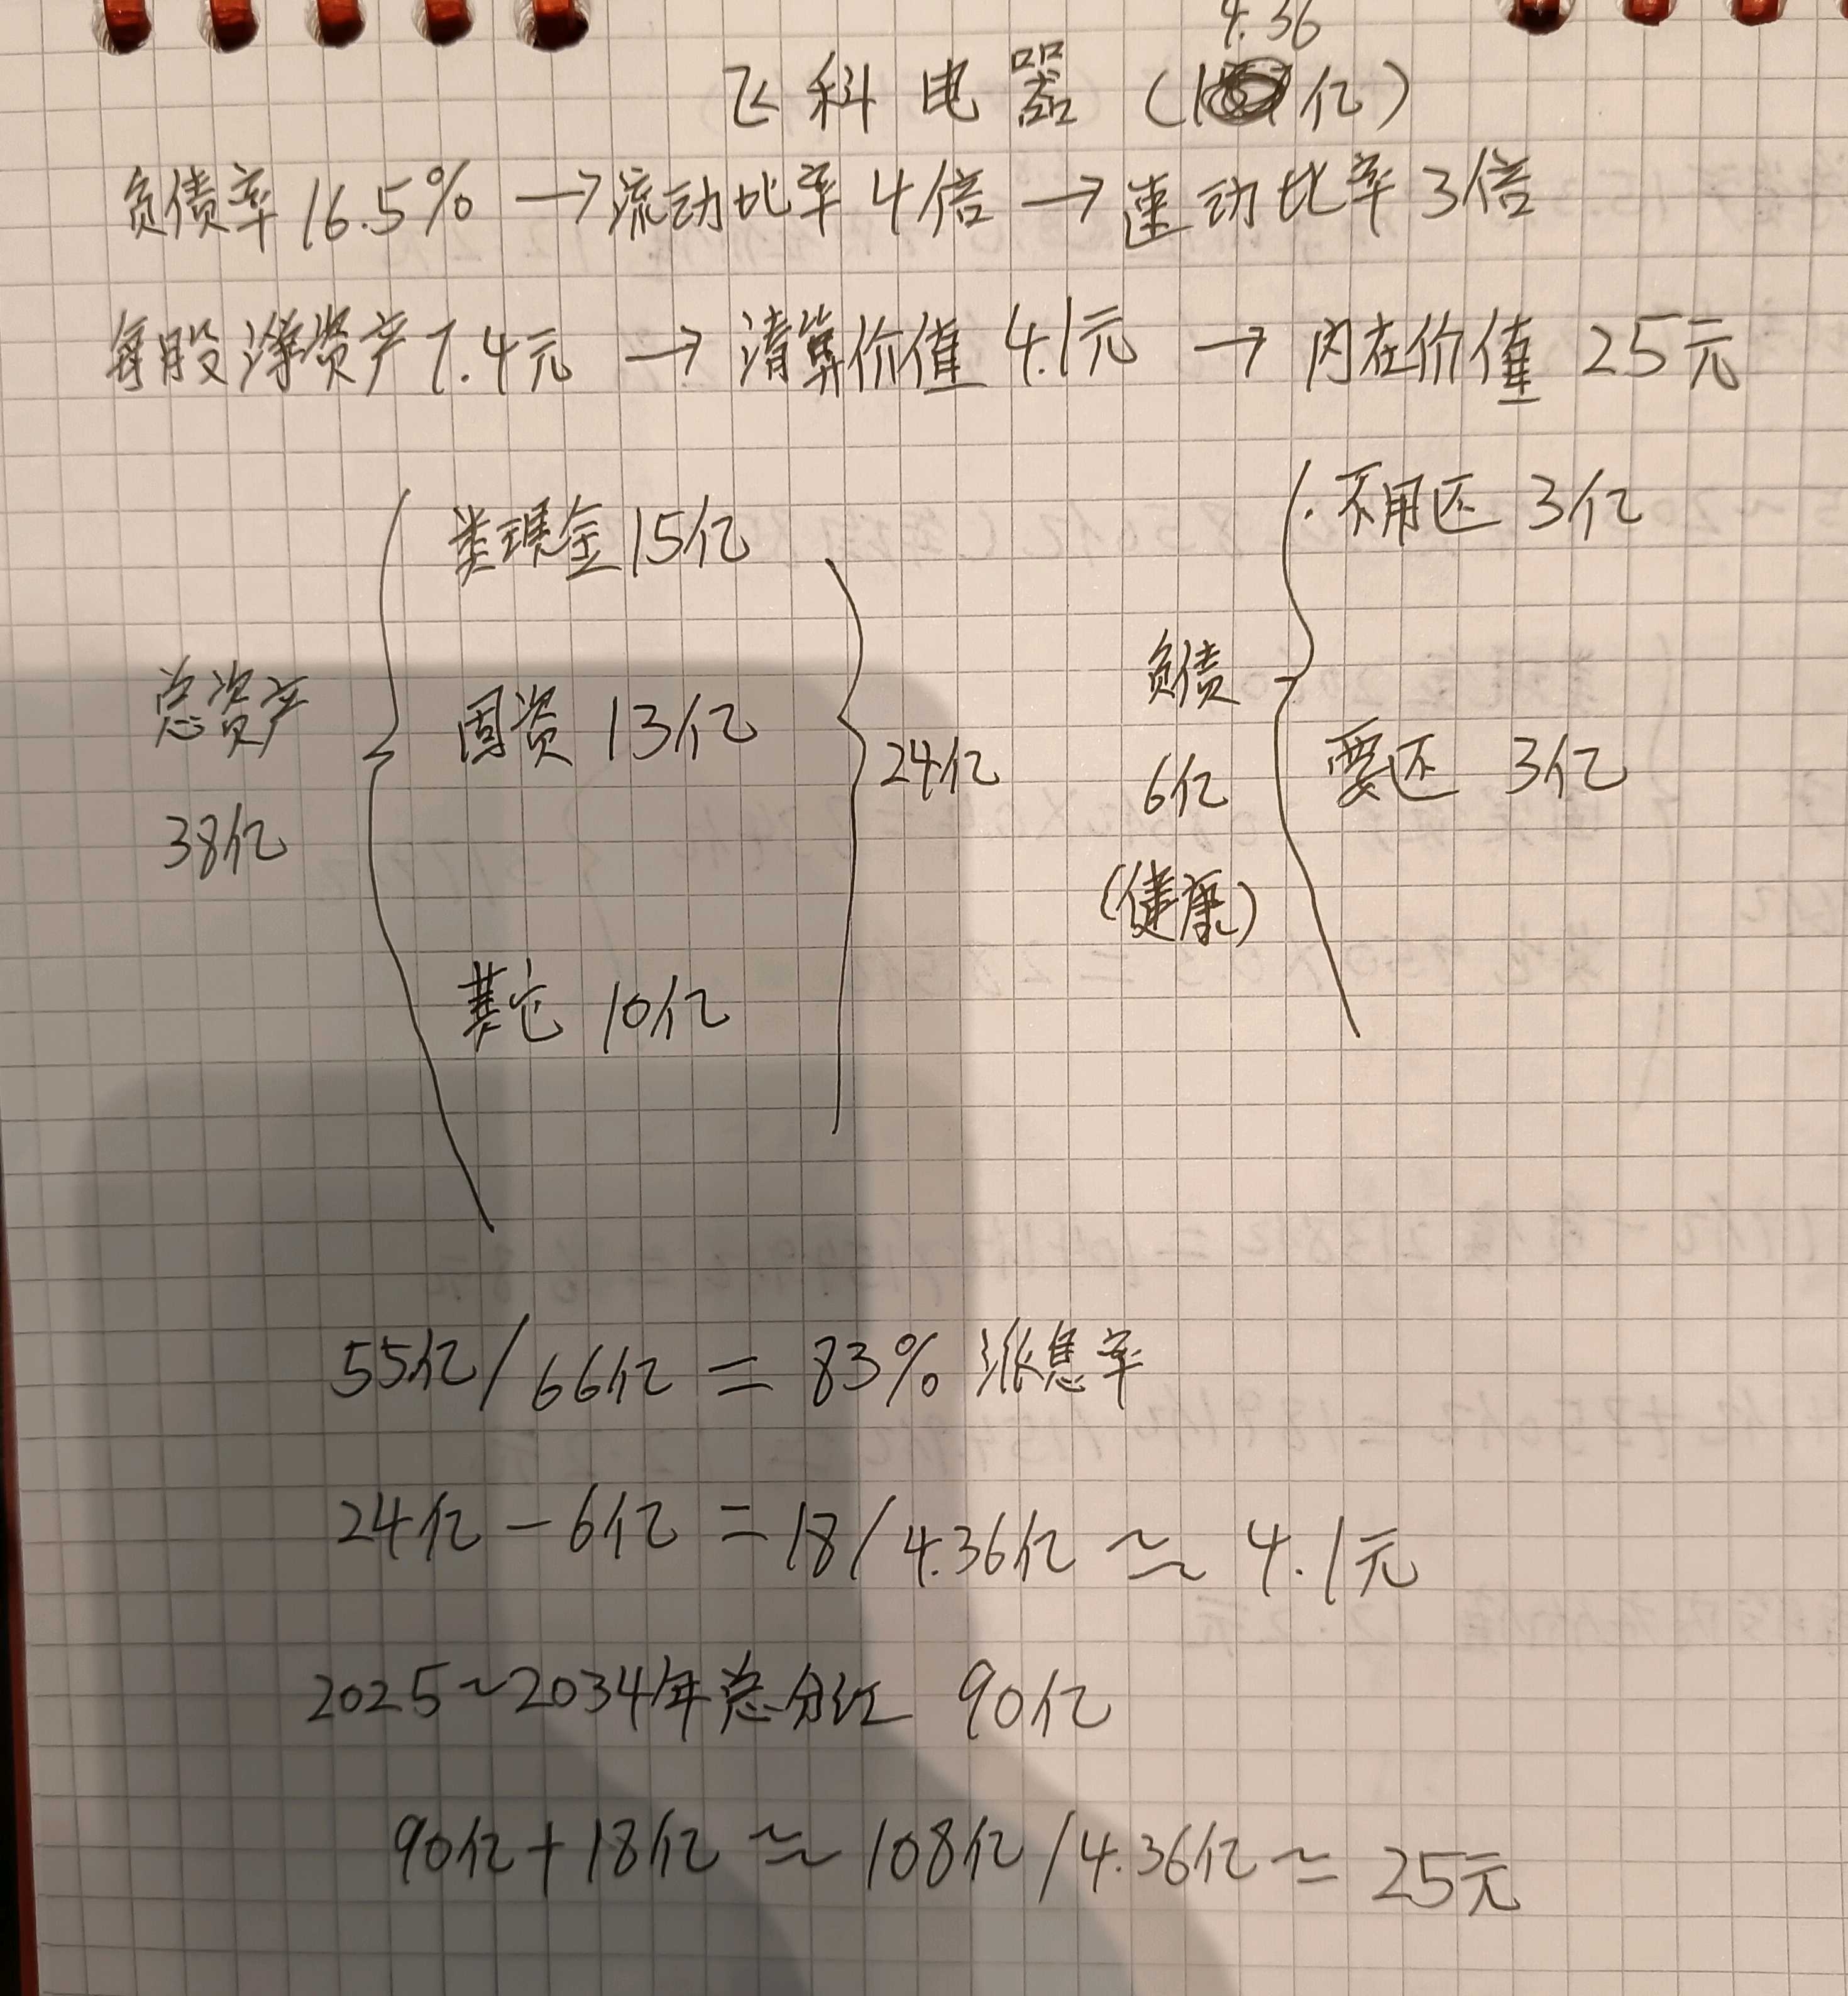 4.36
飞科电器（1亿）
负债率16.5% →流动比率4倍→速动比率3倍
每股净资产7.4元 → 清算价值4.1元 → 内在价值 25元
类现金15亿
不用还 3亿
总资产
38亿
固资 13亿
24亿
负债
6亿
(健康)
要还 3亿
其它 10亿
55亿/66亿 = 83% 派息率
24亿-6亿 = 18/4.36亿 ≈ 4.1元
2025~2034年总分红 90亿
90亿+18亿 ≈ 108亿/4.36亿 ≈ 25元